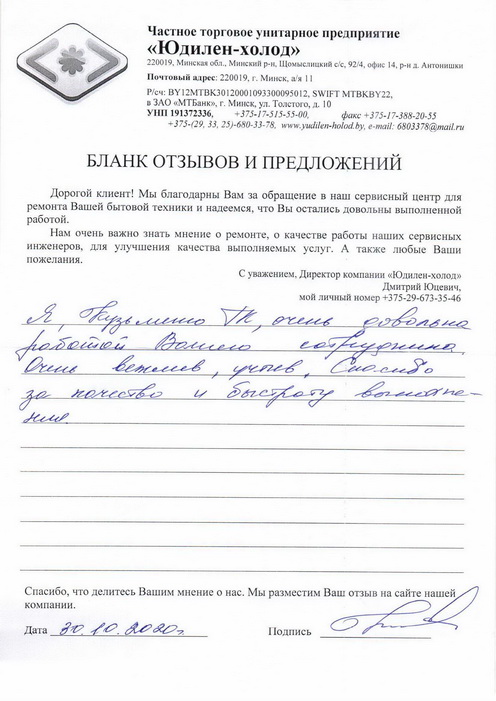 Частное торговое унитарное предприятие
«Юдилен-холод»
220019, Минская обл., Минский р-н, Щомыслицкий с/с, 92/4, офис 14, р-н д. Антонишки
Почтовый адрес: 220019, г. Минск, а/я 11
Р/сч: BY12MTBK30120001093300095012, SWIFT MTBKBY22,
в ЗАО «МТБанк», г. Минск, ул. Толстого, д. 10
УНП 191372336, +375-17-515-55-00, факс +375-17-388-20-55
+375-(29, 33, 25)-680-33-78, www.yudilen-holod.by, e-mail: 6803378@mail.ru
БЛАНК ОТЗЫВОВ И ПРЕДЛОЖЕНИЙ
Дорогой клиент! Мы благодарны Вам за обращение в наш сервисный центр для
ремонта Вашей бытовой техники и надеемся, что Вы остались довольны выполненной
работой.
Нам очень важно знать мнение о ремонте, о качестве работы наших сервисных
инженеров, для улучшения качества выполняемых услуг. А также любые Ваши
пожелания.
С уважением, Директор компании «Юдилен-холод»
Дмитрий Юцевич,
мой личный номер +375-29-673-35-46
Я, Кузьменко ТК, очень довольна
работой Вашего сотрудника.
Очень вежлив, учтив, Спасибо
за качество и быстроту выполне-
ния.
Спасибо, что делитесь Вашим мнение о нас. Мы разместим Ваш отзыв на сайте нашей
компании.
Дата 30.10.2020г. Подпись